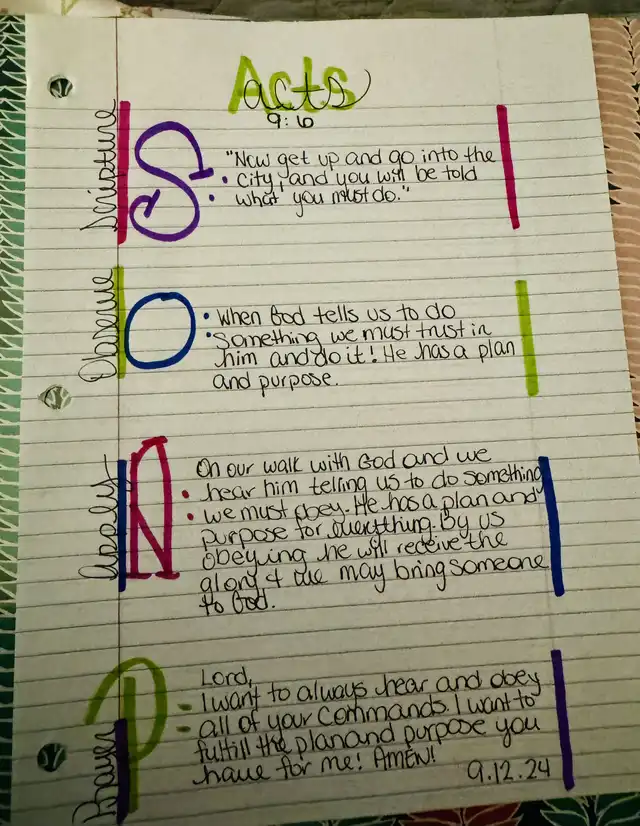 Acts
acts
9:6
Scripture
S
"Now get up and go into the
city, and you will be told
what you must do."
Observe
O
When God tells us to do
something we must trust in
him and do it! He has a plan
and purpose.
Apply
A
On our walk with God and we
hear him telling us to do something
we must obey. He has a plan and
purpose for everything. By us
obeying he will receive the
glory & we may bring someone
to God.
Prayer
P
Lord,
I want to always hear and obey
all of your commands. I want to
fulfill the plan and purpose you
have for me! AMEN!
9.12.24